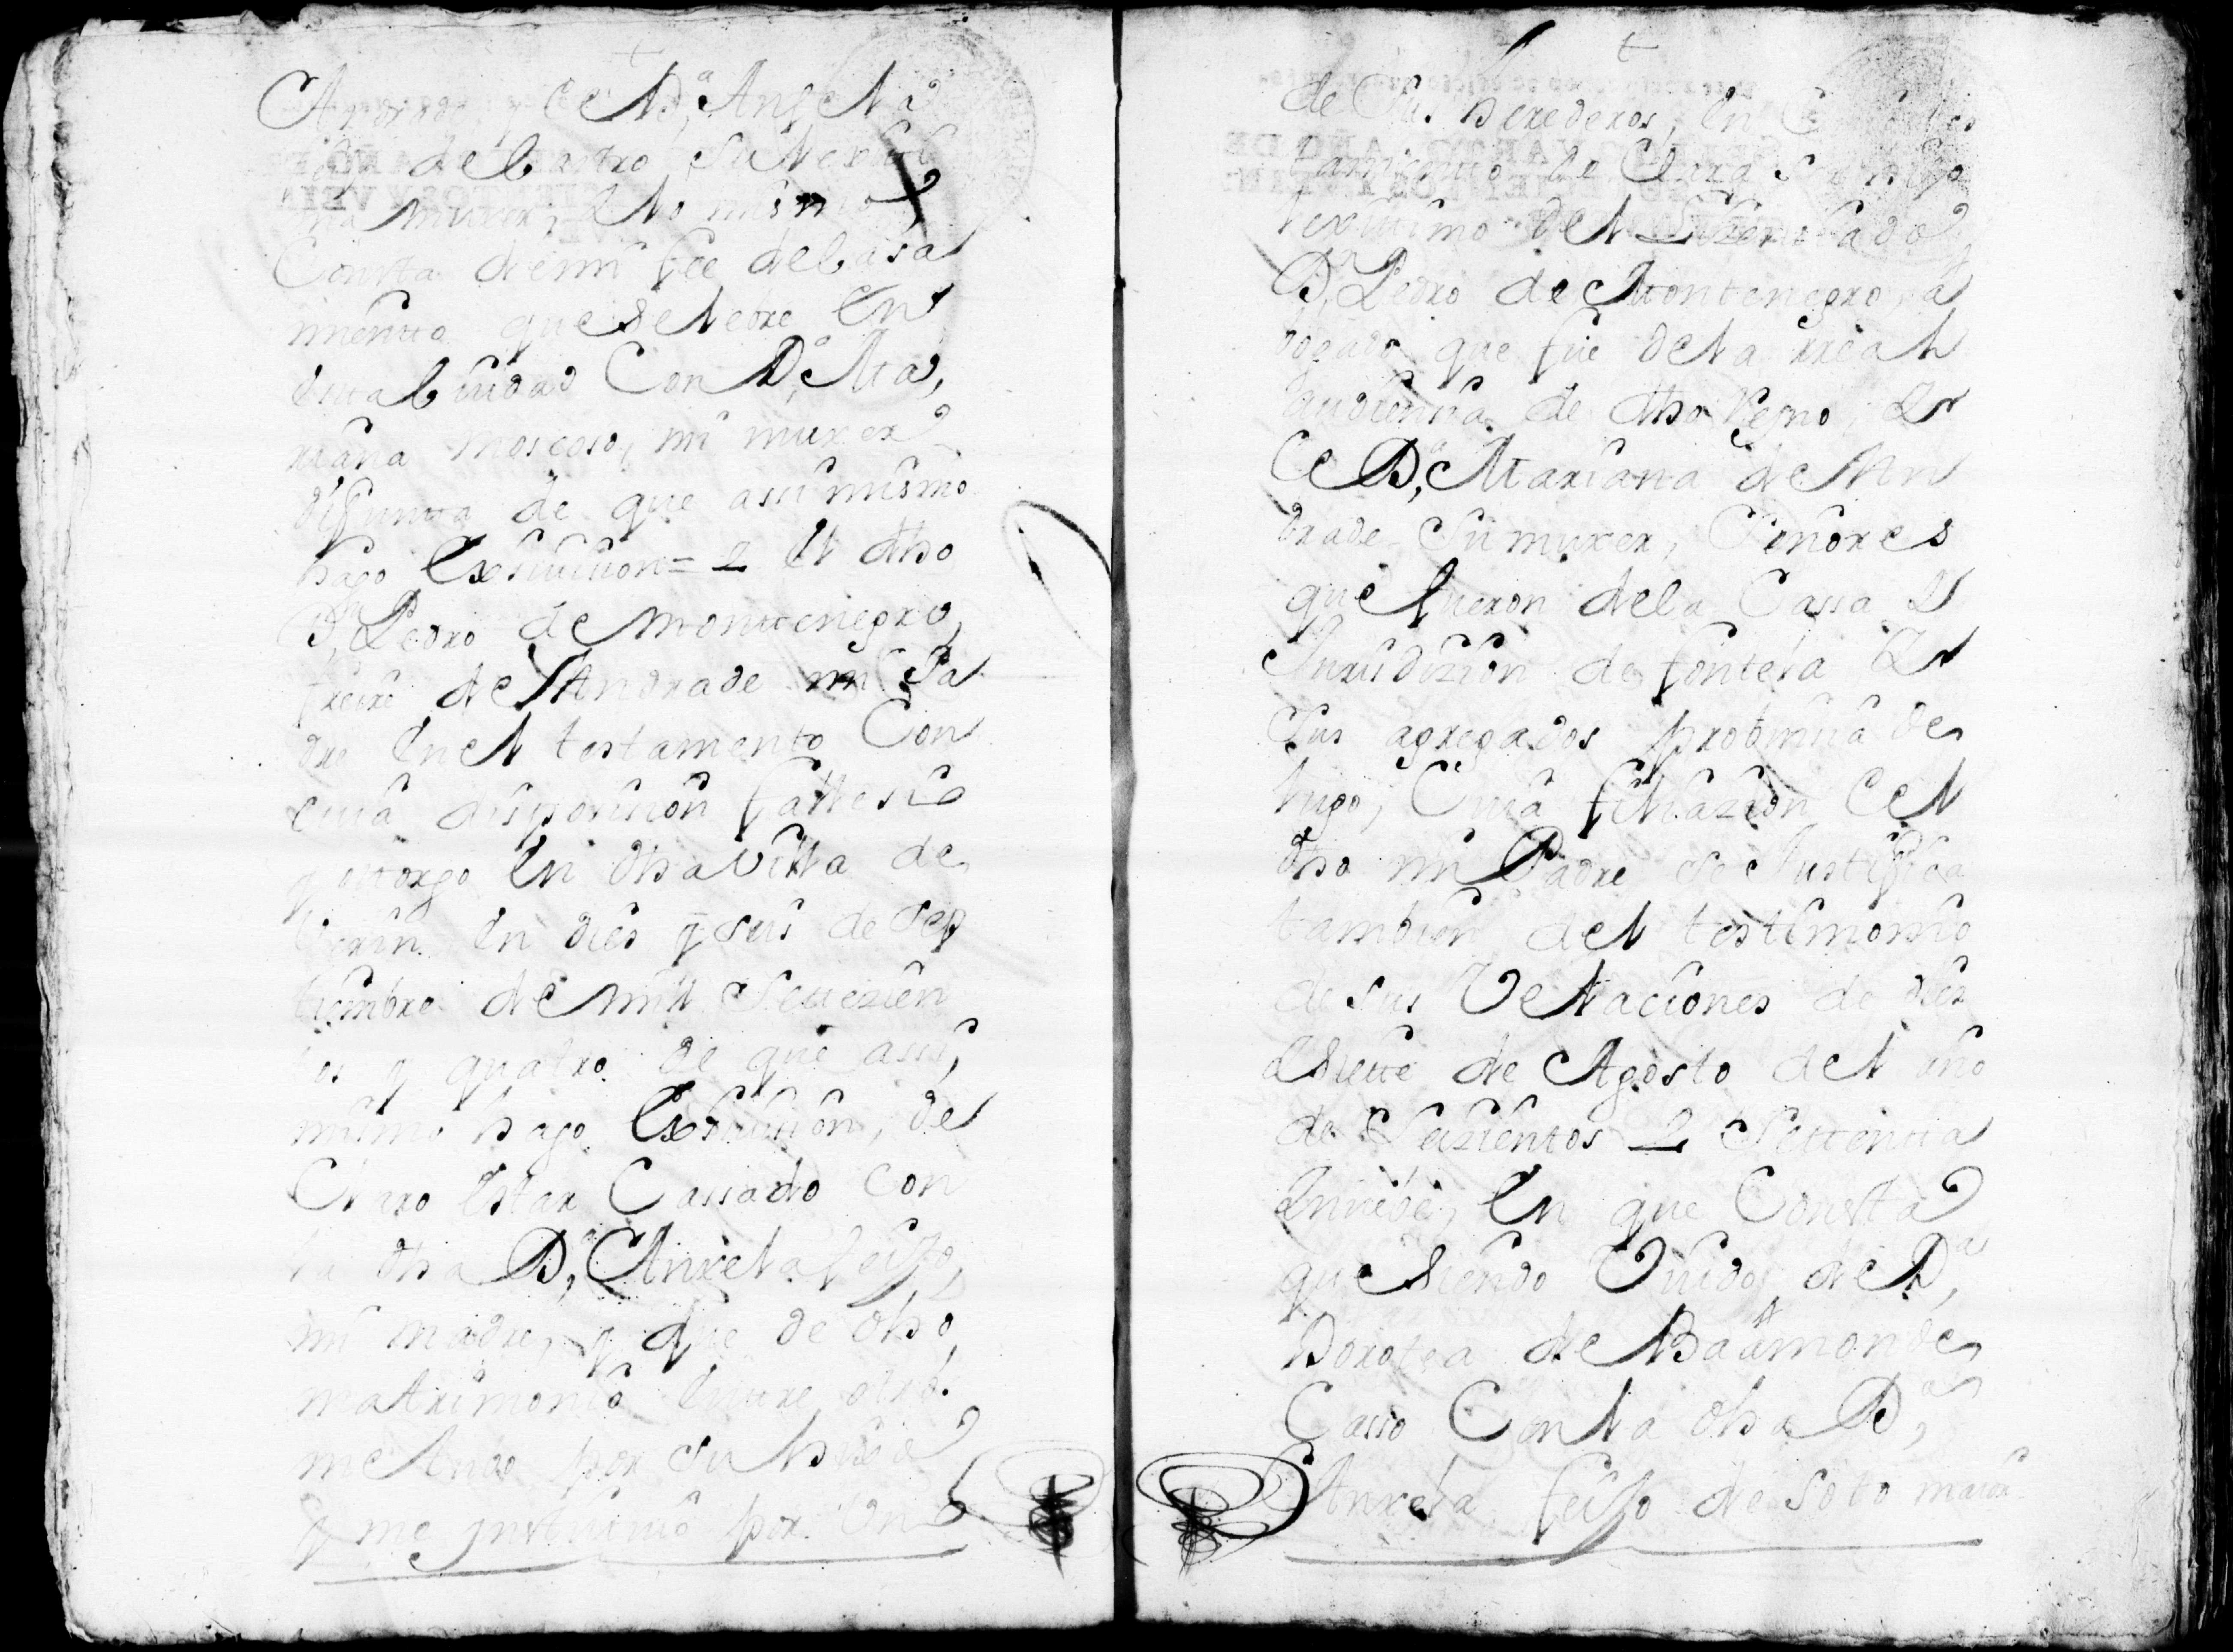 Andrade, y de D.ª Angela
de Castro su lexiti
ma muxer, Y lo mismo
Consta de mi fee de Cassa
miento que selebre en
esta Ciudad Con D.ª Ma,
riana Moscoso, mi muxer
difunta de que assi mismo
hago Exsiuicion = Y El dho
D.n Pedro de Montenegro,
freire de Andrade mi Pa
dre En el testamento Con
cuia disposicion fallesio
y ottorgo En dha Villa de
Verin En dies y seis de Sep
tiembre de mill Settezien
tos y quatro de que assi,
mismo hago Exsiuicion, de
Claro Estar Cassado Con
la dha D.ª Anxela feijo,
mi madre, y que de dho,
matrimonio Entre otros
me tubo por su hijo
y me ynstituio por Uno
de sus herederos, En
de Clara su hijo
lexitimo del Lizenciado
D.n Pedro de Montenegro, a
bogado que fue de la rreal
Audiencia de dho Reyno, Y
de D.ª Mariana de An
drade su muxer, Señores
que fueron de la Cassa Y
Jurisdizion de fontela Y
sus agregados probincia de
lugo, Cuia filiazion del
dho mi Padre se Justifica
tambien del testimonio
de sus Velaciones de dies
Y siette de Agosto del año
de Seizientos Y Settenta
Y nuebe, En que Consta
que siendo Viudo de D.ª
Dorotea de Baamonde
Casso Con la dha D.ª
Anxela feijo de Soto maior